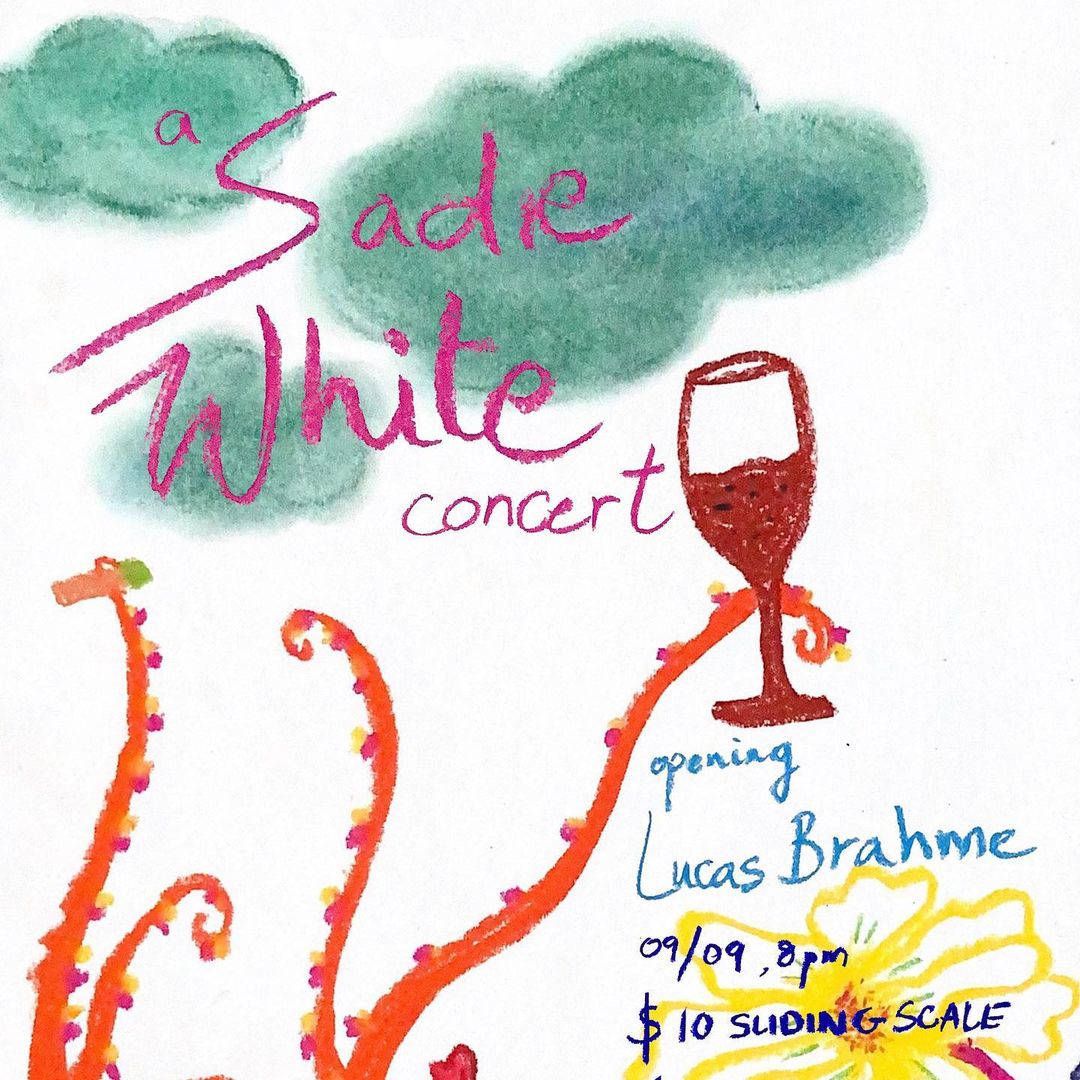 a
Sadie
White
concert
opening
Lucas Brahme
09/09, 8pm
$10 SLIDING SCALE